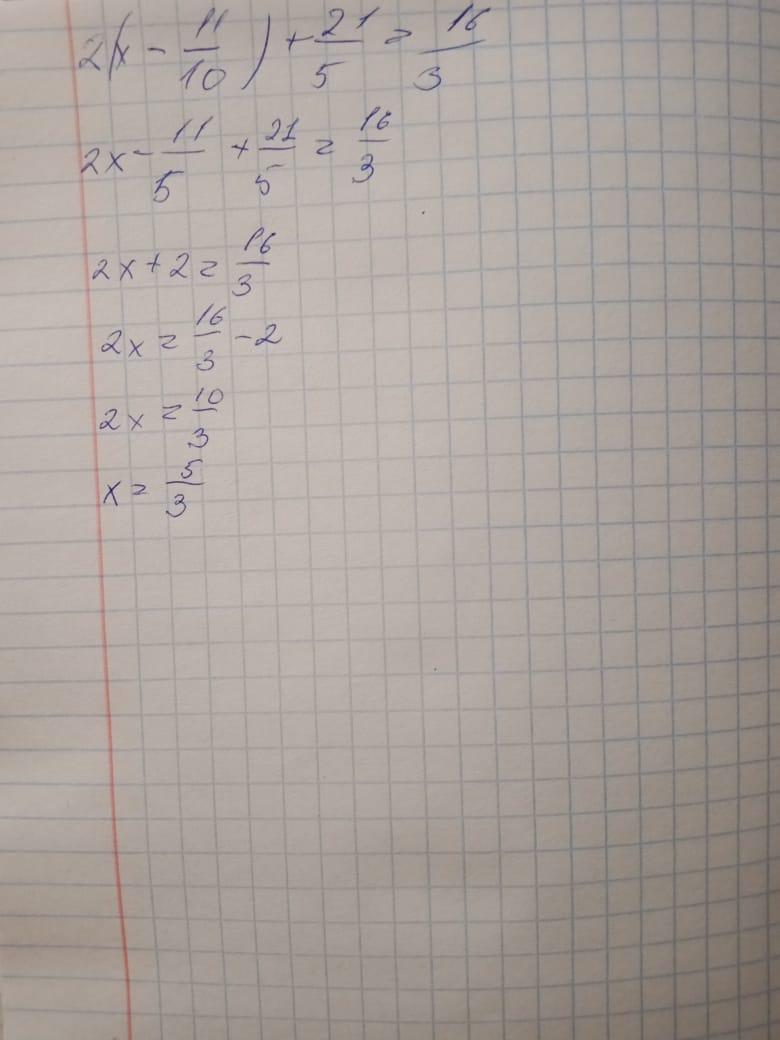 2(x - 11/10) + 21/5 = 16/3
2x - 11/5 + 21/5 = 16/3
2x + 2 = 16/3
2x = 16/3 - 2
2x = 10/3
x = 5/3